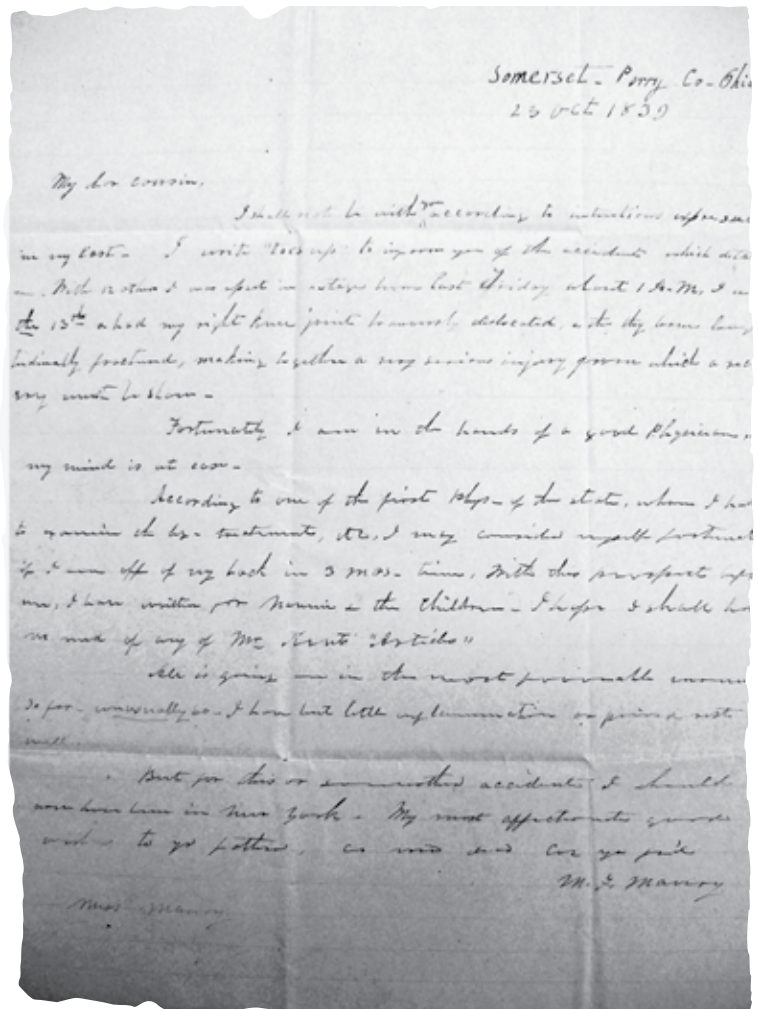 Somerset - Perry Co - Ohio
23 Oct 1839
My dear cousin,
I shall not be with yr according to intentions expressed
in my last - I write to inform you of the accident which
With 12 others I was upset in a stage here last Friday about 1 A.M.
the 13th & had my right knee joint transversely dislocated, & the thigh bone
tudinally fractured, making together a very serious injury from which a
ery must be slow -
Fortunately I am in the hands of a good Physician &
my mind is at ease -
According to one of the first Phys - of the state, whom I had
to examine the leg - treatment, &c, I may consider myself fortunate
if I am off of my back in 3 mos - time, With this prospect
me, I have written for Nannie & the children - I hope I shall have
no need of any of Mr Kents "Articles"
All is going on in the most favourable manner
so far - unusually so - I have but little inflammation or pain & rest
well.
But for this or some other accident I should
now have been in New York - My most affectionate good
wishes to yr father,
M. F. Maury
Miss Maury